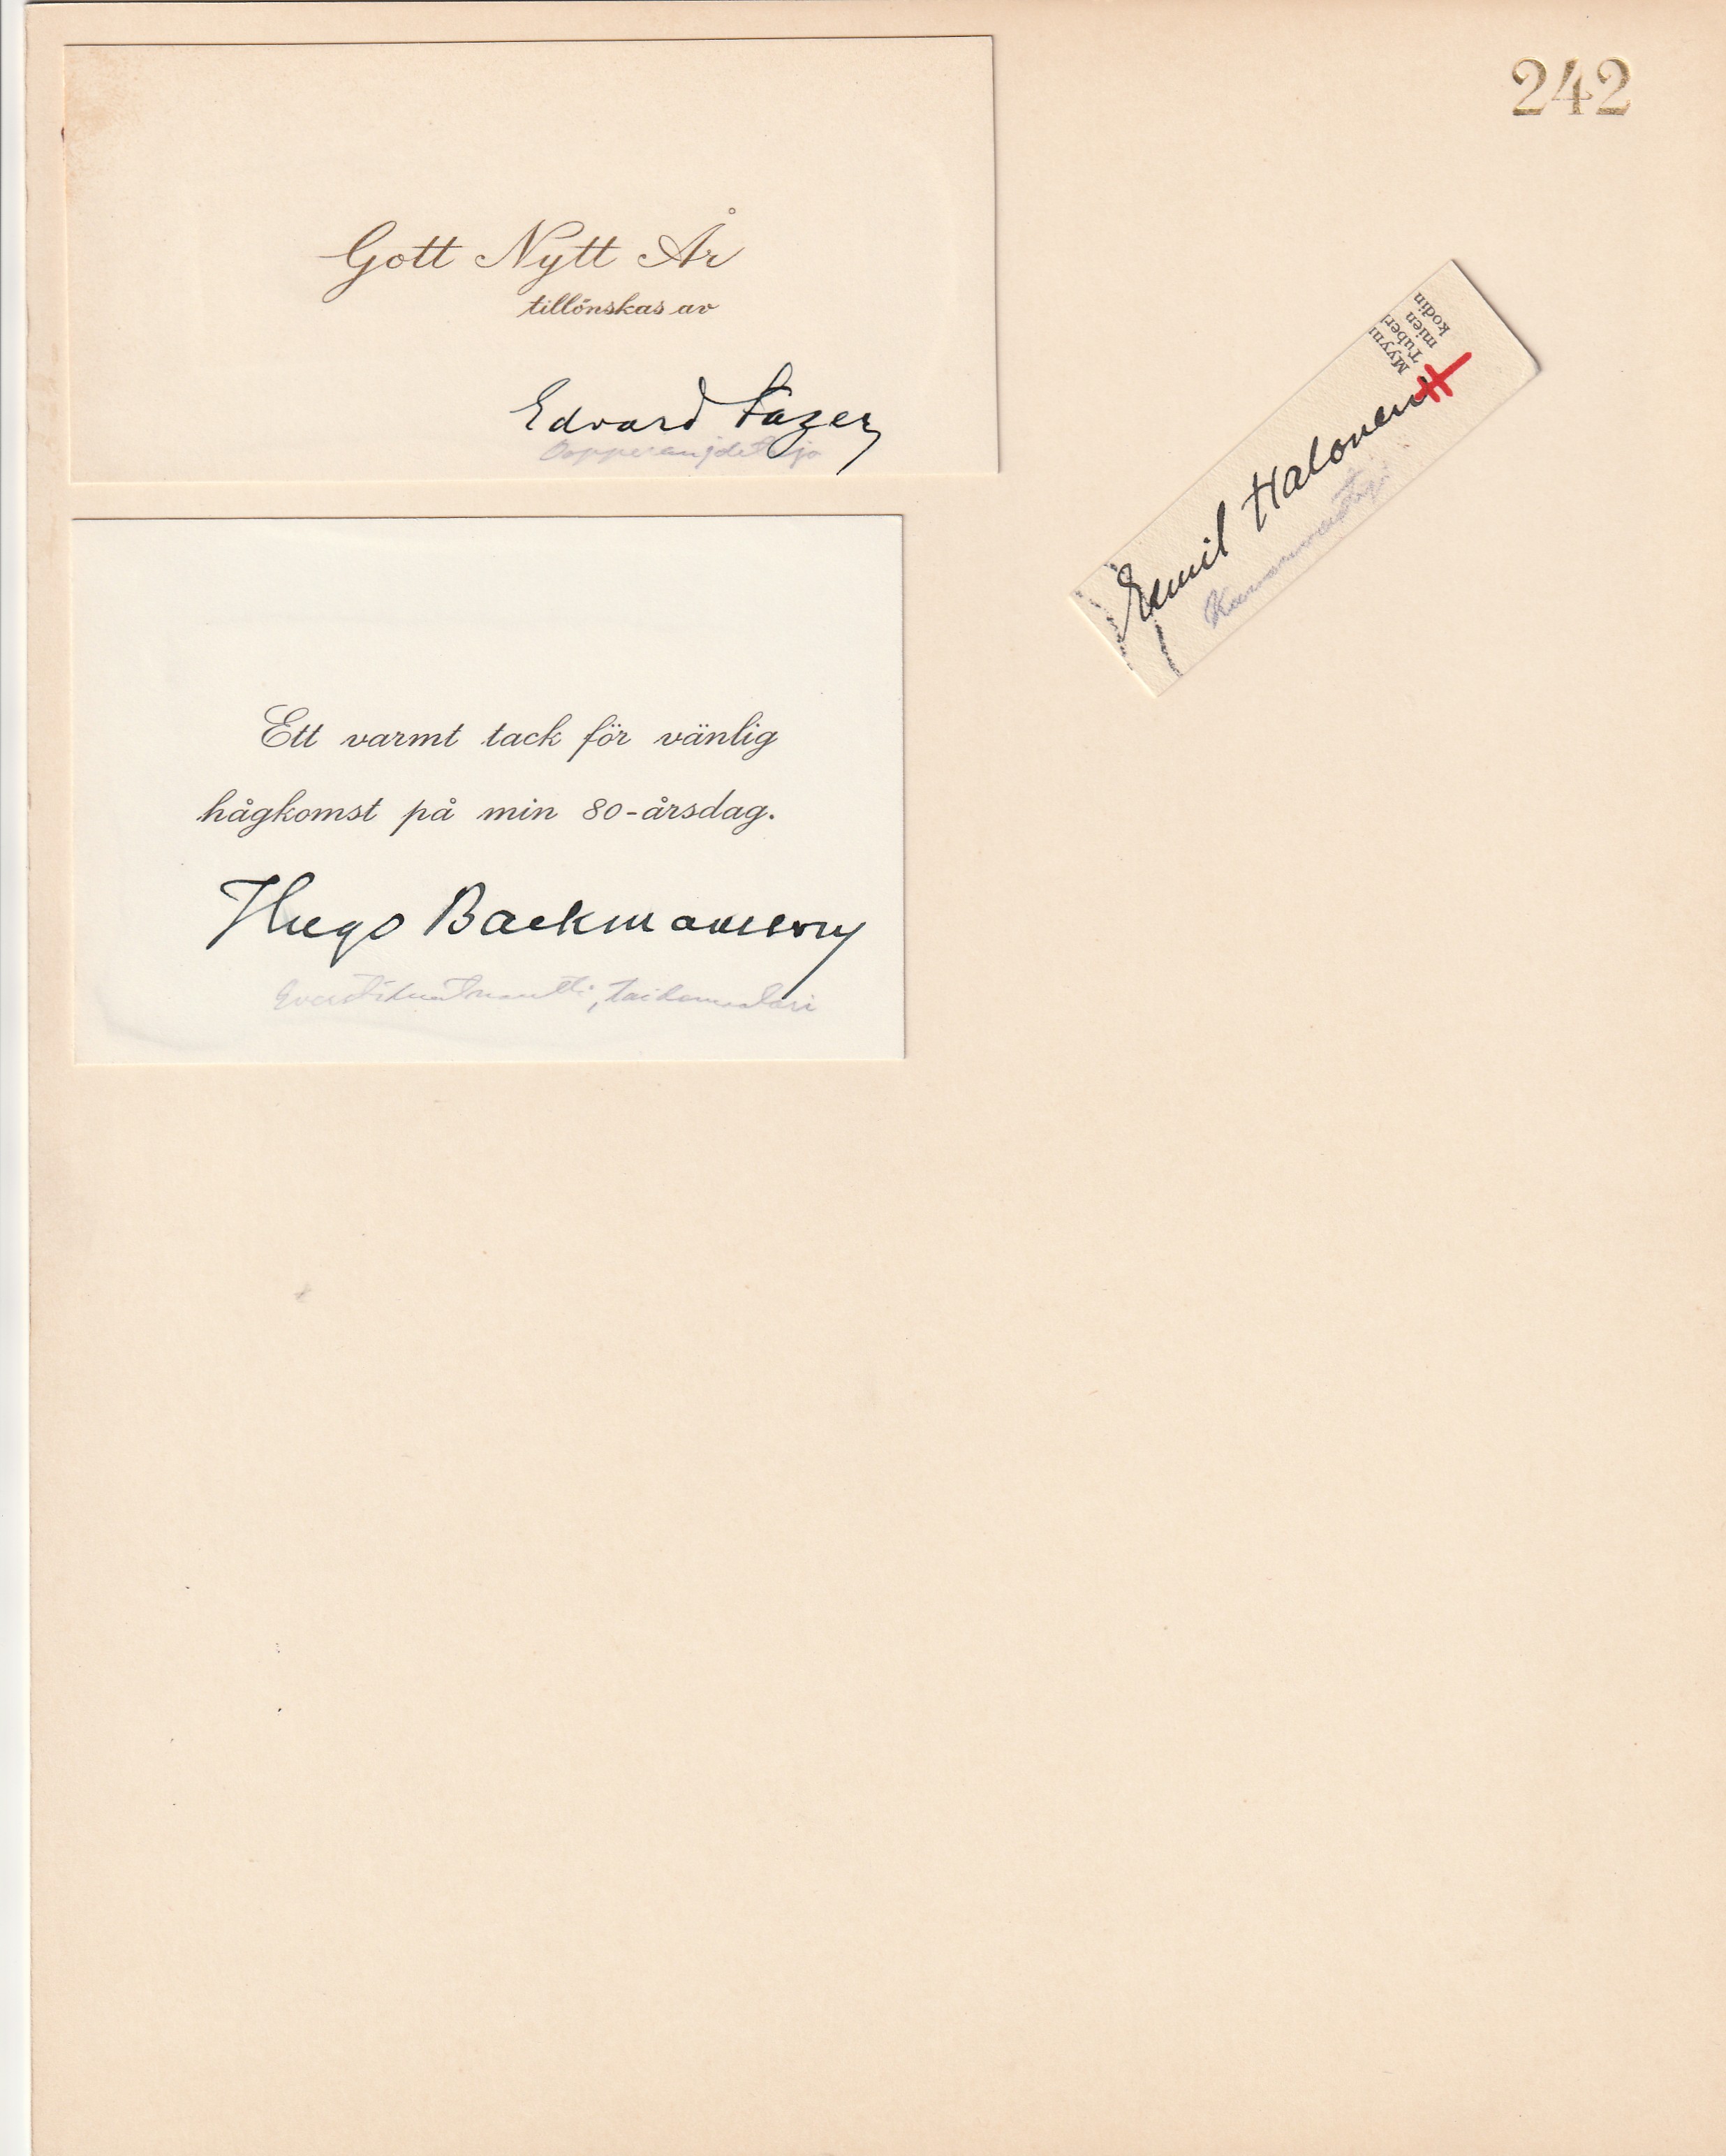 242
Gott Nytt År
tillönskas av
Edvard Fazer
Ett varmt tack för vänlig
hågkomst på min 80-årsdag.
Hugo Backmansson
Everstiluutnantti, taidemaalari
Emil Halonen
Myym
Tuber
mien
kodin